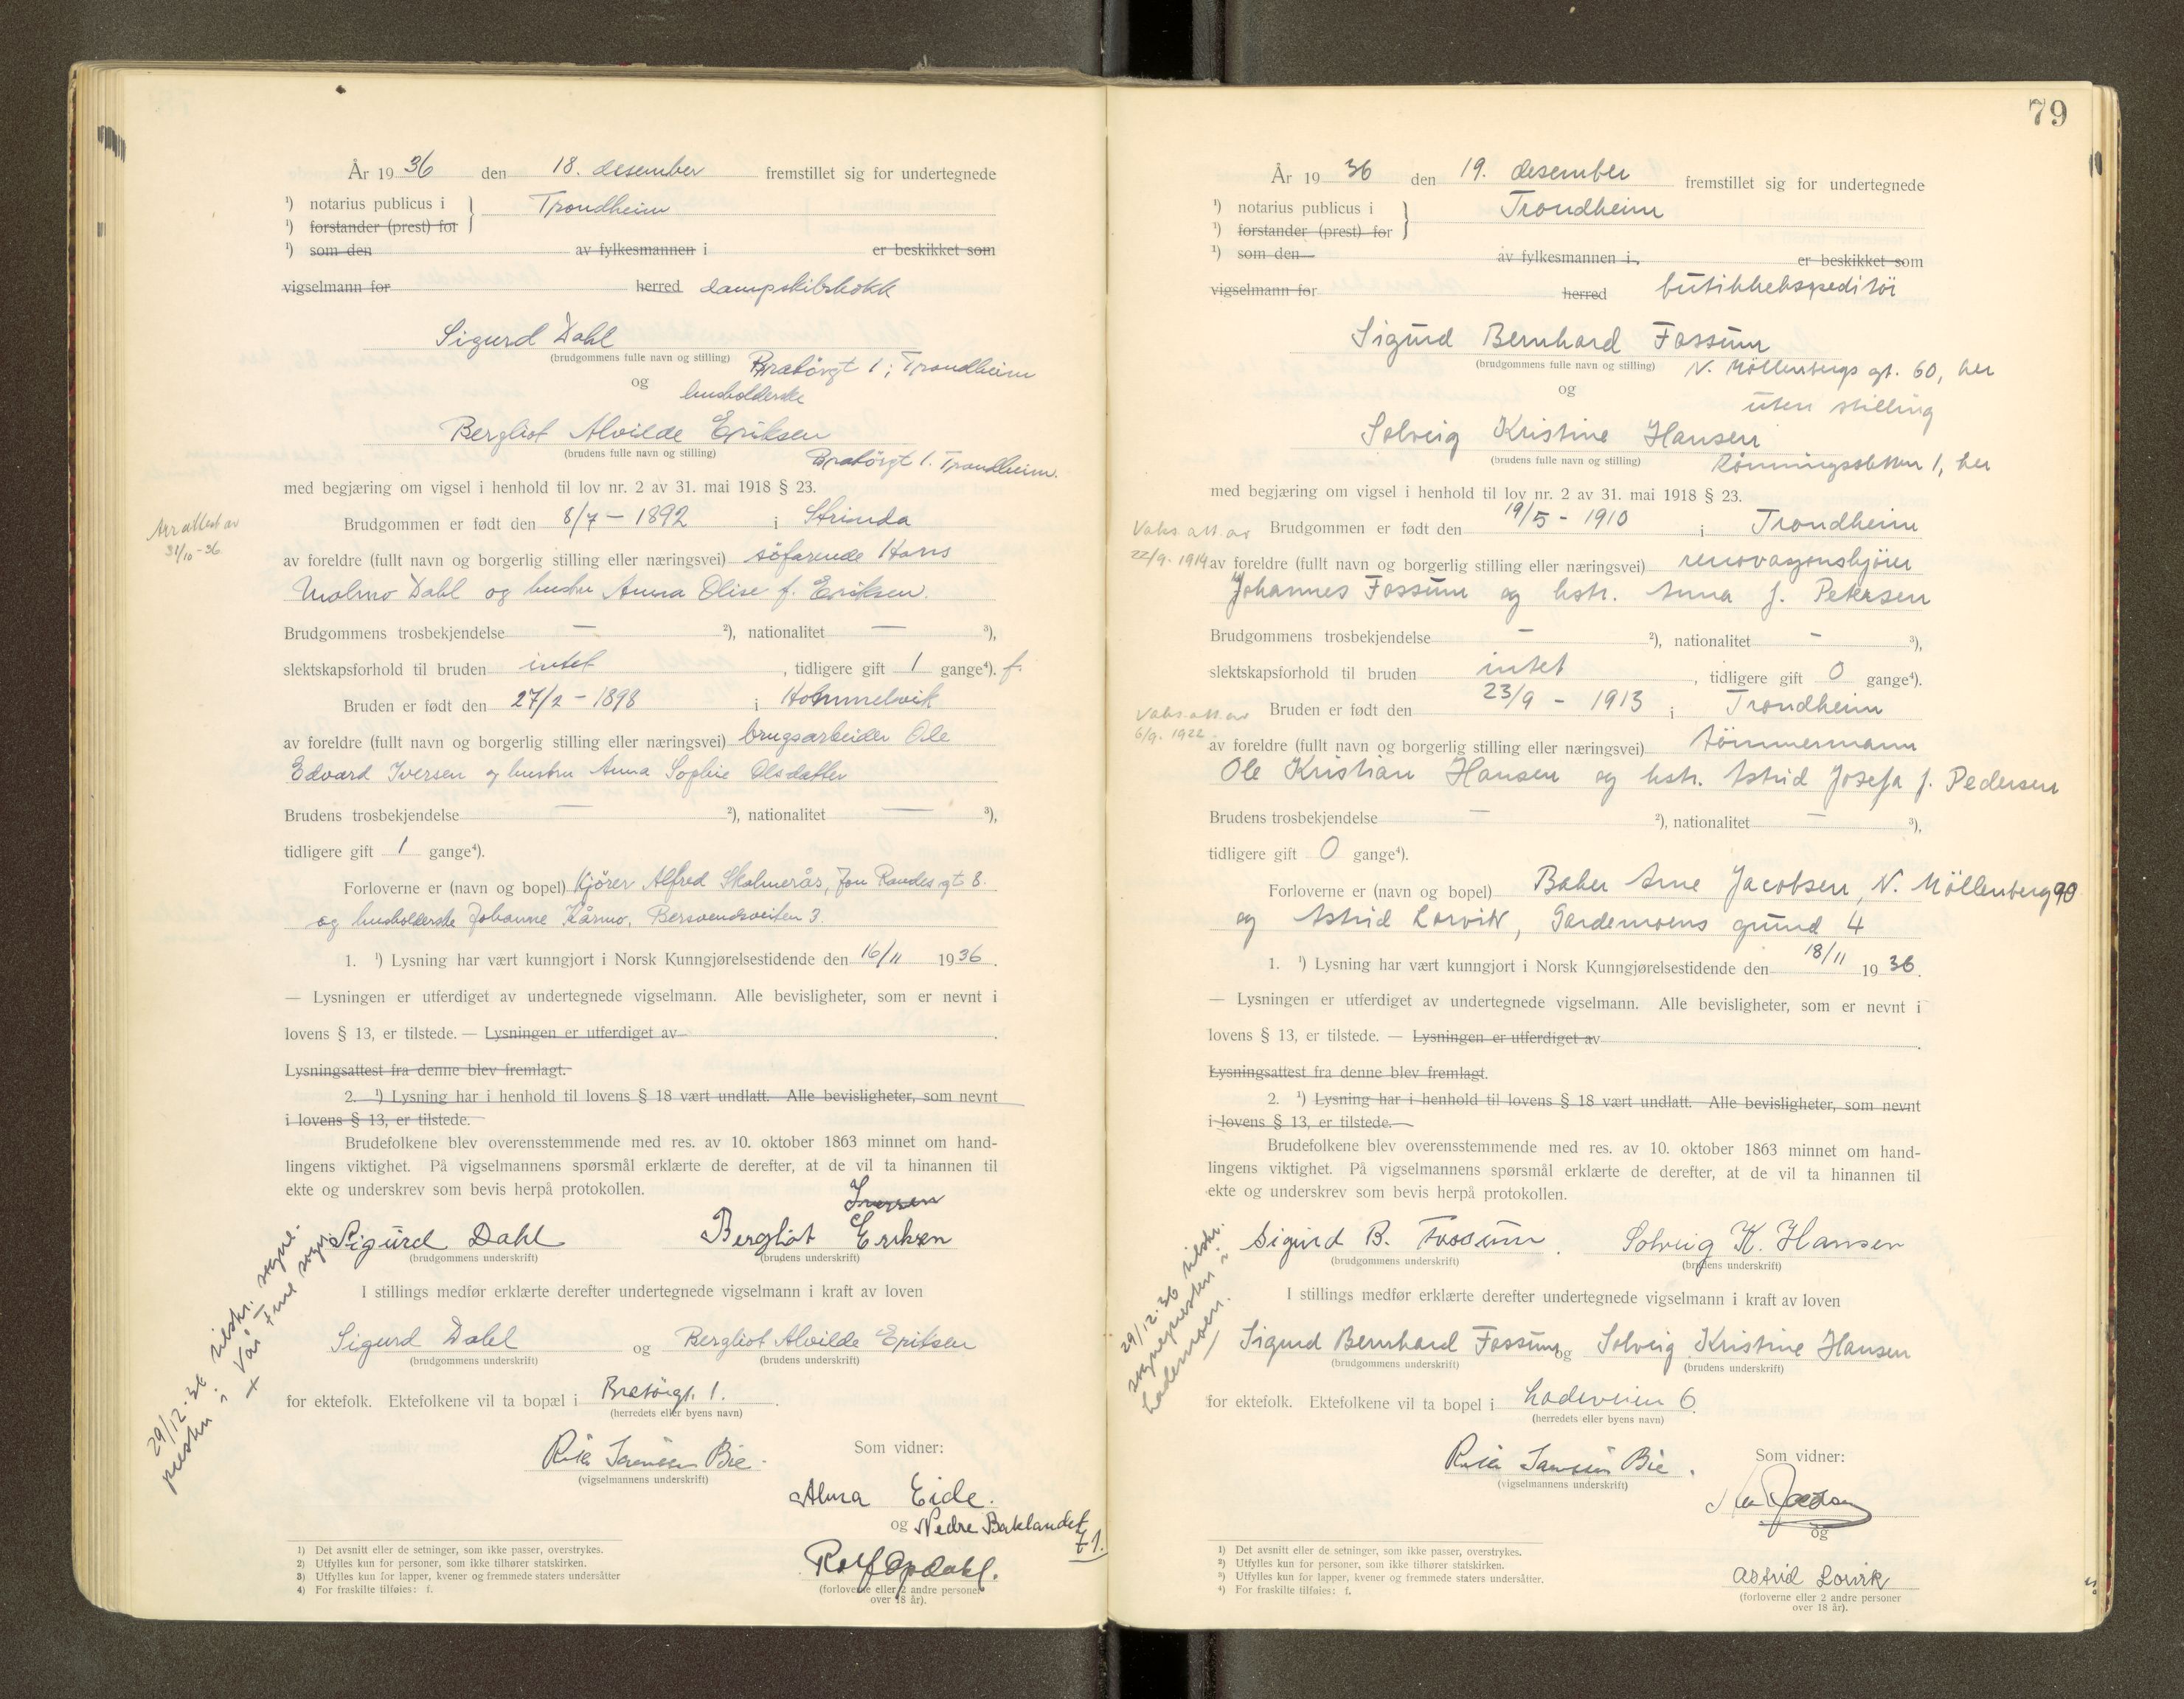 År 1936 den 18. desember fremstillet sig for undertegnede
¹) notarius publicus i Trondheim
¹) forstander (prest) for
¹) som den av fylkesmannen i er beskikket som
vigselmann for herred dampskibskokk
Sigurd Dahl
(brudgommens fulle navn og stilling) Bratörgt 1; Trondheim
og husholderske
Bergliot Alvilde Eriksen
(brudens fulle navn og stilling) Bratörgt 1. Trondheim.
med begjæring om vigsel i henhold til lov nr. 2 av 31. mai 1918 § 23.
Brudgommen er født den 8/7 - 1892 i Strinda
attest av
31/10-36.
av foreldre (fullt navn og borgerlig stilling eller næringsvei) söfarende Hans
Malmo Dahl og hustru Anna Elise f. Eriksen.
Brudgommens trosbekjendelse — ²), nationalitet — ³),
slektskapsforhold til bruden intet, tidligere gift 1 gange⁴). f.
Bruden er født den 27/2 - 1898 i Hommelvik
av foreldre (fullt navn og borgerlig stilling eller næringsvei) brugsarbeider Ole
Edvard Iversen og hustru Anna Sophie Olsdatter
Brudens trosbekjendelse — ²), nationalitet — ³),
tidligere gift 1 gange⁴).
Forloverne er (navn og bopel) Kjörer Alfred Skolmerås, Jon Raudes gt 8.
og husholderske Johanne Kårmo, Bersvendsveiten 3.
1. ¹) Lysning har vært kunngjort i Norsk Kunngjørelsestidende den 16/11 1936.
— Lysningen er utferdiget av undertegnede vigselmann. Alle bevisligheter, som er nevnt i
lovens § 13, er tilstede. — Lysningen er utferdiget av
Lysningsattest fra denne blev fremlagt.
2. ¹) Lysning har i henhold til lovens § 18 vært undlatt. Alle bevisligheter, som nevnt
i lovens § 13, er tilstede.
Brudefolkene blev overensstemmende med res. av 10. oktober 1863 minnet om hand-
lingens viktighet. På vigselmannens spørsmål erklærte de derefter, at de vil ta hinannen til
ekte og underskrev som bevis herpå protokollen.
Iversen
Sigurd Dahl Bergliot Eriksen
(brudgommens underskrift) (brudens underskrift)
I stillings medfør erklærte derefter undertegnede vigselmann i kraft av loven
Sigurd Dahl og Bergliot Alvilde Eriksen
(brudgommens underskrift) (brudens underskrift)
for ektefolk. Ektefolkene vil ta bopæl i Bratörgt. 1.
(herredets eller byens navn)
29/12.36 tilskr. sogne-
presten i Vår Frue sogn.
Som vidner:
(vigselmannens underskrift)
Alma Eide.
og Nedre Baklandet
Rolf Opdahl.
(forloverne eller 2 andre personer
over 18 år).
1) Det avsnitt eller de setninger, som ikke passer, overstrykes.
2) Utfylles kun for personer, som ikke tilhører statskirken.
3) Utfylles kun for lapper, kvener og fremmede staters undersåtter
4) For fraskilte tilføies: f.
79
År 1936 den 19. desember fremstillet sig for undertegnede
¹) notarius publicus i Trondheim
¹) forstander (prest) for
¹) som den av fylkesmannen i er beskikket som
vigselmann for herred butikkekspeditör
Sigurd Bernhard Fossum
(brudgommens fulle navn og stilling) N. Möllenbergs gt. 60, her
og uten stilling
Solveig Kristine Hansen
(brudens fulle navn og stilling) Rönningsletten 1, her
med begjæring om vigsel i henhold til lov nr. 2 av 31. mai 1918 § 23.
Vaks. att. av Brudgommen er født den 19/5 - 1910 i Trondheim
22/9. 1914 av foreldre (fullt navn og borgerlig stilling eller næringsvei) renovasjonskjörer
Johannes Fossum og hstr. Anna f. Petersen
Brudgommens trosbekjendelse - ²), nationalitet - ³),
slektskapsforhold til bruden intet, tidligere gift 0 gange⁴).
Vaks. att. av Bruden er født den 23/9 - 1913 i Trondheim
6/9. 1922. av foreldre (fullt navn og borgerlig stilling eller næringsvei) tömmermann
Ole Kristian Hansen og hstr. Astrid Josefa f. Pedersen
Brudens trosbekjendelse — ²), nationalitet — ³),
tidligere gift 0 gange⁴).
Forloverne er (navn og bopel) Baker Arne Jacobsen, N. Möllenberg 90
og Astrid Lorvik, Gardemoens grund 4
1. ¹) Lysning har vært kunngjort i Norsk Kunngjørelsestidende den 18/11 1936.
— Lysningen er utferdiget av undertegnede vigselmann. Alle bevisligheter, som er nevnt i
lovens § 13, er tilstede. — Lysningen er utferdiget av
Lysningsattest fra denne blev fremlagt.
2. ¹) Lysning har i henhold til lovens § 18 vært undlatt. Alle bevisligheter, som nevnt
i lovens § 13, er tilstede.
Brudefolkene blev overensstemmende med res. av 10. oktober 1863 minnet om hand-
lingens viktighet. På vigselmannens spørsmål erklærte de derefter, at de vil ta hinannen til
ekte og underskrev som bevis herpå protokollen.
Sigurd B. Fossum. Solveig K. Hansen
(brudgommens underskrift) (brudens underskrift)
I stillings medfør erklærte derefter undertegnede vigselmann i kraft av loven
Sigurd Bernhard Fossum og Solveig Kristine Hansen
(brudgommens underskrift) (brudens underskrift)
for ektefolk. Ektefolkene vil ta bopel i Ladeveien 6.
(herredets eller byens navn)
29/12.36 tilskr.
sognepresten i
Lademoen.
Som vidner:
(vigselmannens underskrift)
og
Astrid Lorvik
(forloverne eller 2 andre personer
over 18 år).
1) Det avsnitt eller de setninger, som ikke passer, overstrykes.
2) Utfylles kun for personer, som ikke tilhører statskirken.
3) Utfylles kun for lapper, kvener og fremmede staters undersåtter.
4) For fraskilte tilføies: f.